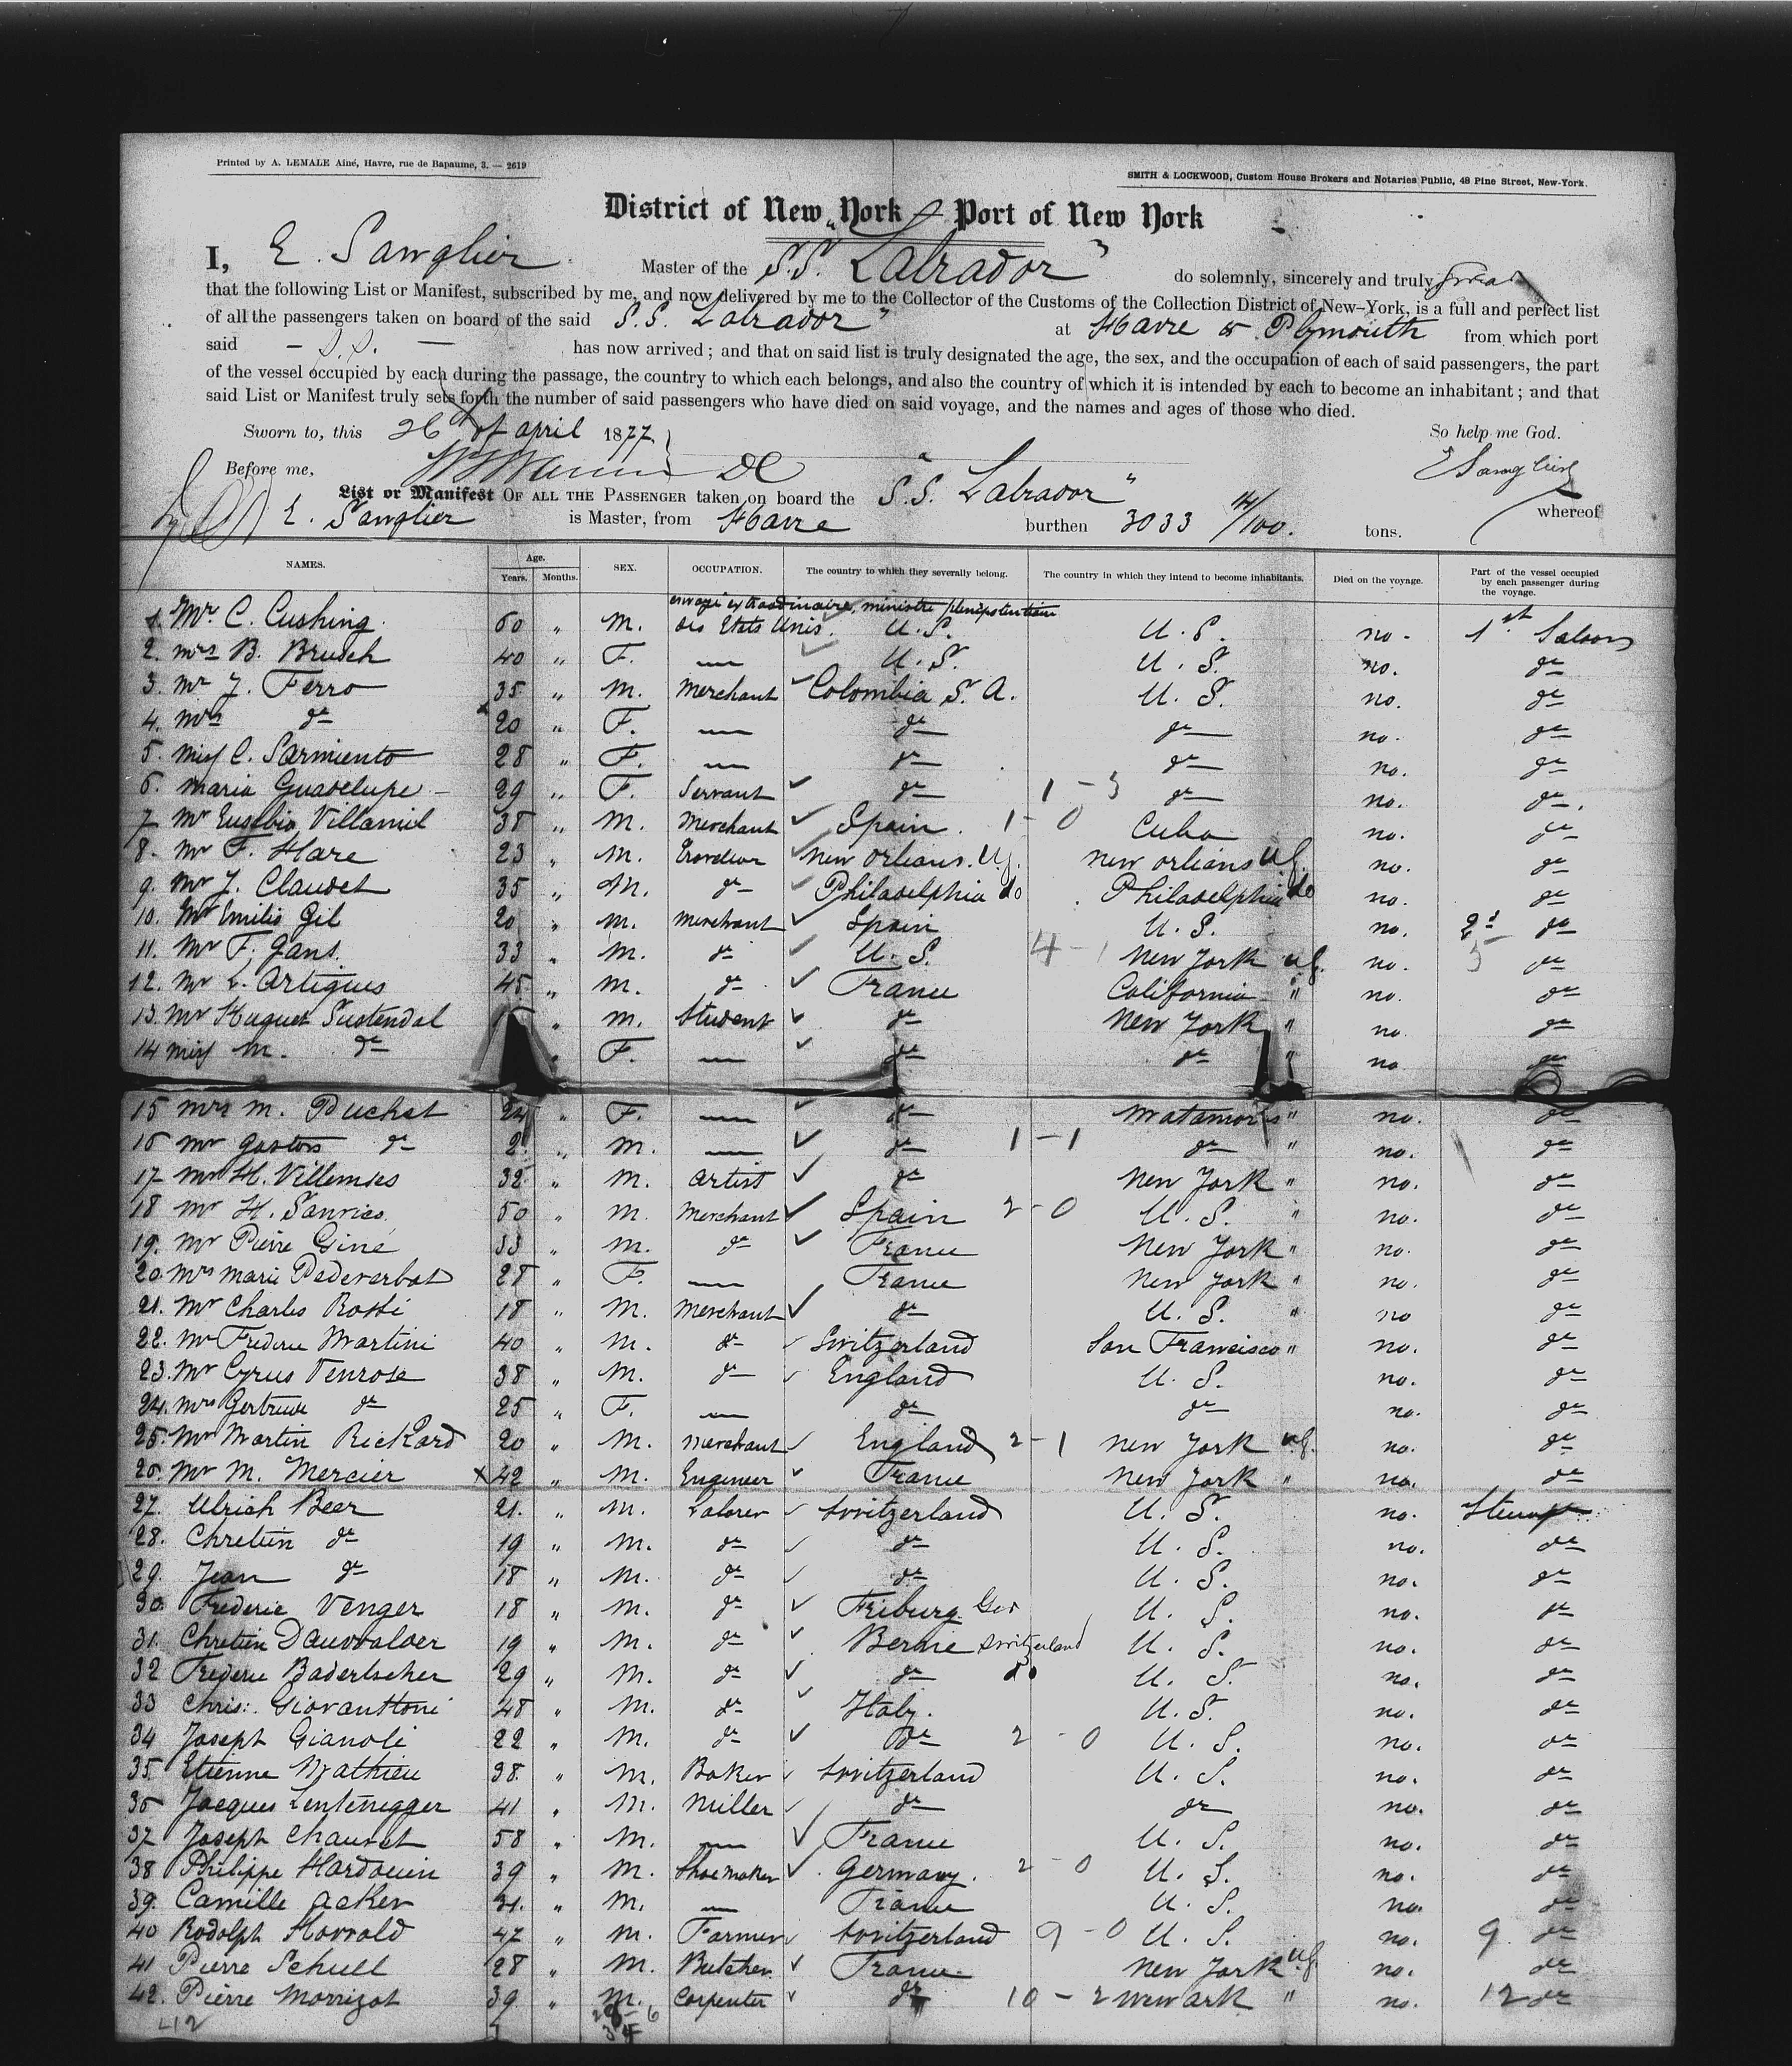 Printed by A. LEMALE Ainé, Havre, rue de Bapaume, 3. — 2619
SMITH & LOCKWOOD, Custom House Brokers and Notaries Public, 48 Pine Street, New-York.
District of New York Port of New York
I, E. Sanglier Master of the S.S. "Labrador" do solemnly, sincerely and truly swear
that the following List or Manifest, subscribed by me, and now delivered by me to the Collector of the Customs of the Collection District of New-York, is a full and perfect list
of all the passengers taken on board of the said S.S. Labrador" at Havre & Plymouth from which port
said — S.S. — has now arrived ; and that on said list is truly designated the age, the sex, and the occupation of each of said passengers, the part
of the vessel occupied by each during the passage, the country to which each belongs, and also the country of which it is intended by each to become an inhabitant ; and that
said List or Manifest truly sets forth the number of said passengers who have died on said voyage, and the names and ages of those who died.
Sworn to, this 26 of april 1877 So help me God.
Before me, DC E Sanglier
List or Manifest OF ALL THE PASSENGER taken on board the "S.S. Labrador" whereof
E. Sanglier is Master, from Havre burthen 3033 14/100. tons.
NAMES. Age. Years. Months. SEX. OCCUPATION. The country to which they severally belong. The country in which they intend to become inhabitants. Died on the voyage. Part of the vessel occupied by each passenger during the voyage.
envoyé extraordinaire, ministre plenipotentiaire
1. Mr. C. Cushing. 60 " M. des Etats Unis. U.S. U.S. no. 1st Saloon
2. Mrs B. Brusch 40 " F. — U.S. U.S. no. do
3. Mr J. Ferro 35 " M. Merchant Colombia S. A. U.S. no. do
4. Mrs do 20 " F. — do do no. do
5. Miss C. Sarmiento 28 " F. — do do no. do
6. Maria Guadelupe 29 " F. Servant do 1-3 do no. do
7 Mr Eusebio Villamil 38 " M. Merchant Spain. 1-0 Cuba no. do
8. Mr F. Hare 23 " M. New Orleans. U.S. New Orleans U.S. no. do
9. Mr J. Claudet 35 " M. do Philadelphia do Philadelphia do no. do
10. Mr Emilio Gil 20 " M. Merchant Spain U.S. no. 2d do
11. Mr F. Gans. 33 " M. do U.S. 4-1 New York U.S. no. 3 do
12. Mr L. Artigues 45 " M. do France California " no. do
13. Mr Huguet Sustendal " M. Student do New York " no. do
14 Miss M. do " F. — do do " no do
15 Mrs M. Puchet 24 " F. — do Matamoros " no. do
16 Mr Gaston do 2 " M. — do 1-1 do " no. do
17 Mr H. Villemses 32 " M. Artist do New York " no. do
18 Mr H. Sanrics. 50 " M. Merchant Spain 2-0 U.S. " no. do
19. Mr Pierre Giné 33 " M. do France New York " no. do
20. Mrs Marie Pedeverbat 28 " F. — France New York " no. do
21. Mr Charles Rossi 18 " M. Merchant do U.S. " no do
22. Mr Frederic Martini 40 " M. do Switzerland San Francisco " no. do
23. Mr Cyrus Penrose 38 " M. do England U.S. no. do
24. Mrs Gertrude do 25 " F. — do do no. do
25. Mr Martin Rickard 20 " M. Merchant England 2-1 New York U.S. no. do
26. Mr M. Mercier x 42 " M. Engineer France New York " no. do
27. Ulrich Beer 21. " M. Laborer Switzerland U.S. no. Steerage
28. Chretien do 19 " M. do do U.S. no. do
29. Jean do 18 " M. do do U.S. no. do
30. Frederic Venger 18 " M. do Friburg Ger U.S. no. do
31. Chretien Dauwalder 19 " M. do Berne Switzerland U.S. no. do
32 Frederic Badertscher 29 " M. do do do U.S. no. do
33 Chris: Giovanttoni 48 " M. do Italy. U.S. no. do
34 Joseph Gianoli 22 " M. do do 2-0 U.S. no. do
35 Etienne Mathieu 38. " M. Baker Switzerland U.S. no. do
36 Jacques Lentenegger 41 " M. Miller do do no. do
37 Joseph Chauvet 58 " M. — France U.S. no. do
38 Philippe Hardouin 39 " M. Shoemaker Germany. 2-0 U.S. no. do
39. Camille Acker 31. M. — France U.S. no. do
40 Rodolph Howald 47 " M. Farmer Switzerland 9-0 U.S. no. 9 do
41 Pierre Schull 28 " M. Butcher France New York U.S. no. do
42. Pierre Morrizot 39 " M. Carpenter do 10-2 Newark " no. 12 do